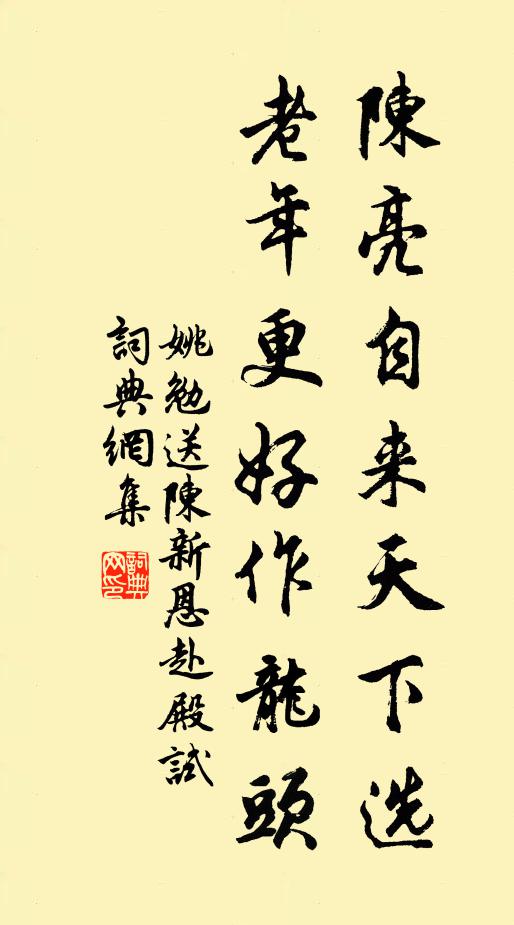 陳亮自来天下选
老年更好作龍頭
姚勉送陳新恩赴殿試
詞典網集
詞典网印